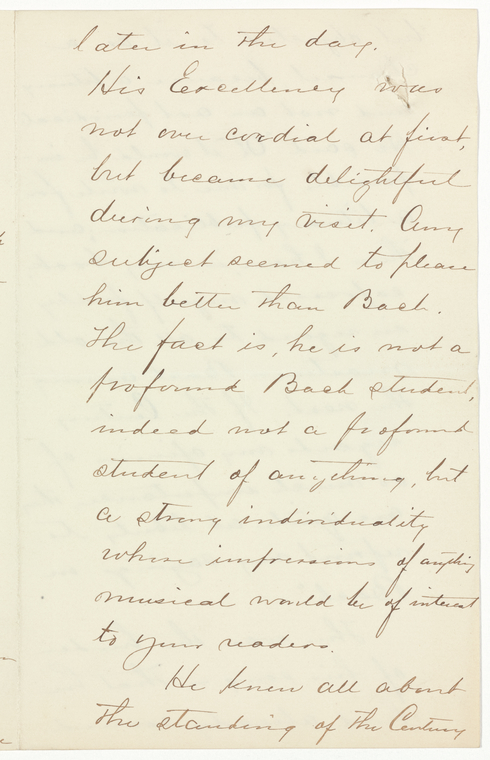 later in the day.
His Excellency was
not over cordial at first,
but became delightful
during my visit. Any
subject seemed to please
him better than Bach.
The fact is, he is not a
profound Bach student,
indeed not a profound
student of anything, but
a strong individuality
whose impressions of anything
musical would be of interest
to your readers.
He knew all about
the standing of the Century